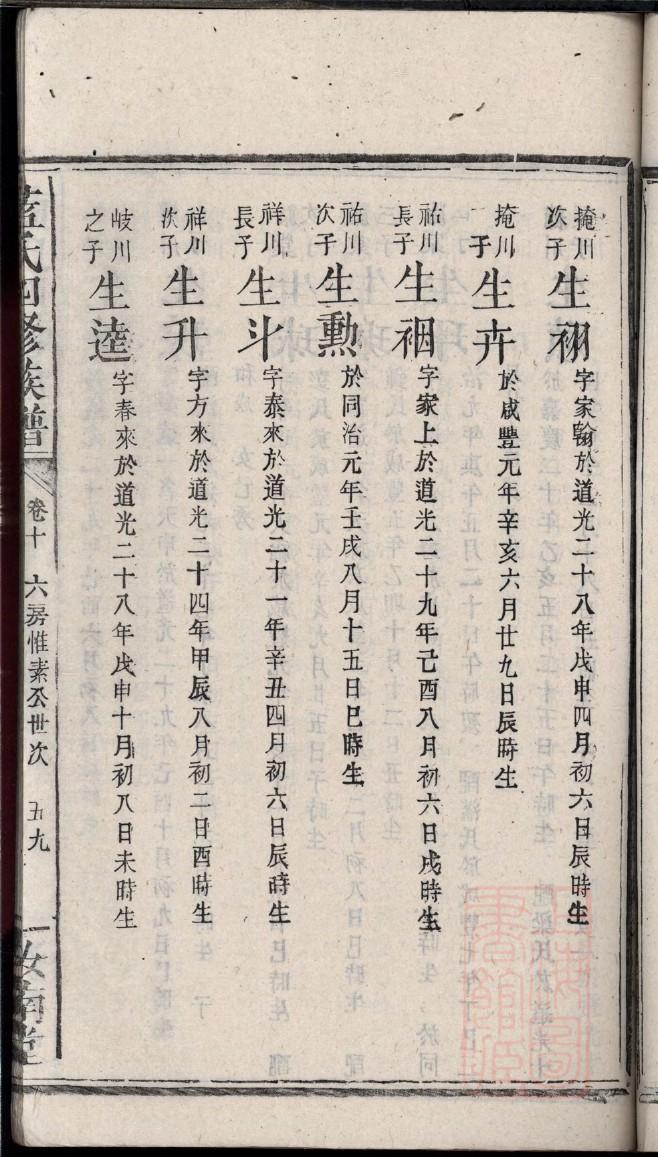 掩川次子生䄠字家翰於道光二十八年戊申四月初六日辰時生
掩川子生卉於咸豐元年辛亥六月廿九日辰時生
祐川長子生裀字家上於道光二十九年己酉八月初六日戌時生
祐川次子生勲於同治元年壬戌八月十五日巳時生
祥川長子生斗字泰來於道光二十一年辛丑四月初六日辰時生
祥川次子生升字方來於道光二十四年甲辰八月初二日酉時生
岐川之子生逵字春來於道光二十八年戊申十月初八日未時生
氏四修族譜 卷十 六房惟素公世次 五九 汝南堂